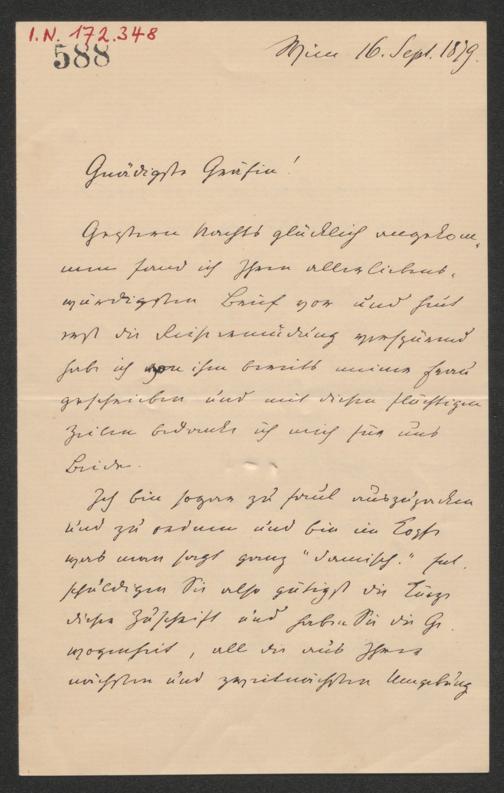 I.N. 172.348
588
Wien 16. Sept. 1879.
Gnädigste Gräfin!
Gestern Nachts glücklich angekom-
men fand ich Ihren allerliebens-
würdigsten Brief vor und heut
erst die Reiseermüdung verspürend
habe ich von ihm bereits meiner Frau
geschrieben und mit diesen flüchtigen
Zeilen bedanke ich mich für uns
Beide.
Ich bin sogar zu faul auszupacken
und zu ordnen und bin im Kopfe
was man sagt ganz "damisch." Ent-
schuldigen Sie also gütigst die Kürze
dieser Zuschrift und haben Sie die Ge-
wogenheit, all die aus Ihrer
nächsten und zweitnächsten Umgebung